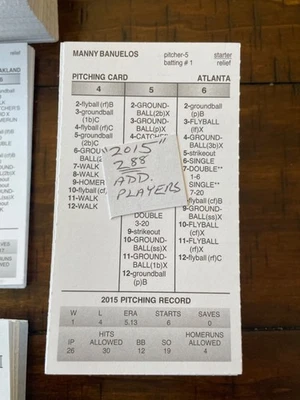 MANNY BANUELOS
pitcher-5
starter
batting # 1
relief
PITCHING CARD
ATLANTA
4
5
6
2-flyball (rf)B
3-groundball
(1b)C
4-flyball (cf)C
5-groundball
(2b)C
7-WALK
8-WALK
9-HOMER
10-flyball (cf)
11-WALK
12-WALK
2-GROUND-
BALL(2b)X
3-GROUND-
BALL(p)X
DOUBLE
3-20
9-strikeout
10-GROUND-
BALL(ss)X
11-GROUND-
BALL(1b)X
12-groundball
(p)B
2-groundball
(p)B
3-FLYBALL
(lf)X
4-GROUND-
BALL(3b)X
5-strikeout
6-SINGLE
7-DOUBLE**
1-6
SINGLE**
7-20
9-GROUND-
BALL(ss)X
10-FLYBALL
(cf)X
11-FLYBALL
(rf)X
12-flyball (rf)C
"2015"
288
ADD.
PLAYERS
2015 PITCHING RECORD
W
L
ERA
STARTS
SAVES
1
4
5.13
6
0
HITS
HOMERUNS
IP
ALLOWED
BB
SO
ALLOWED
26
30
12
19
4